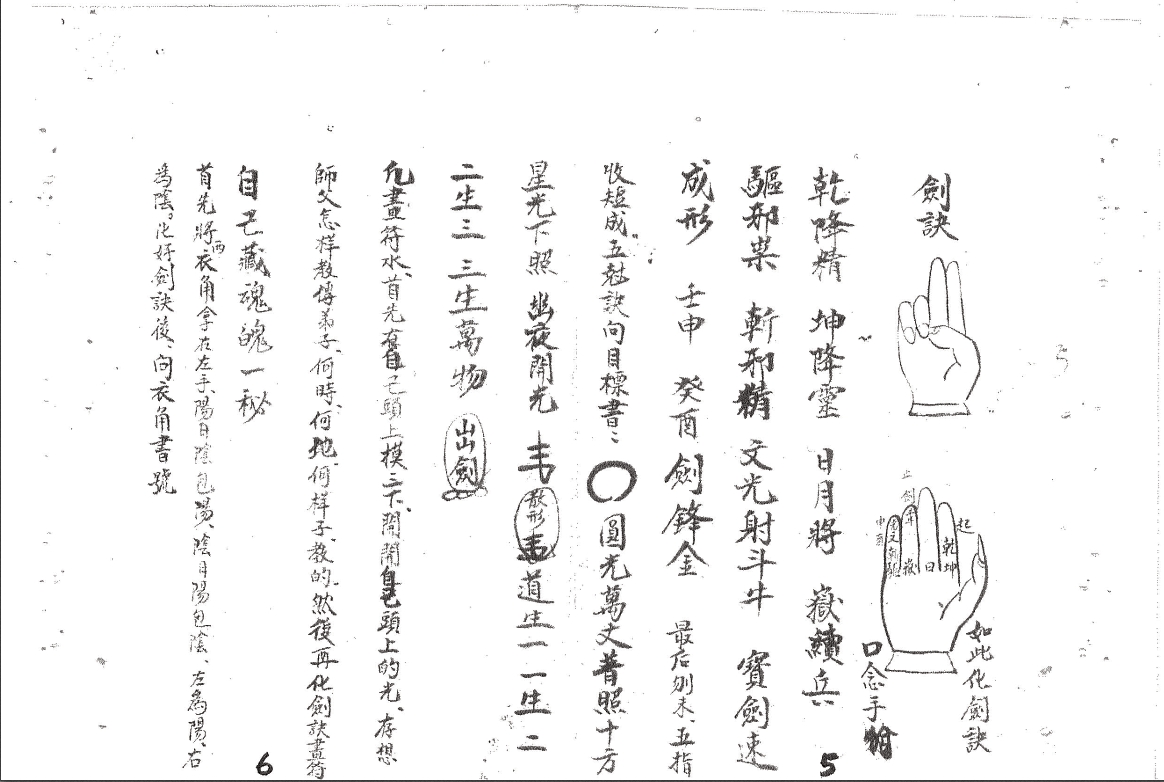 劍訣
如此化劍訣
口念手
起
乾坤
日
嶽
斗
上劍
乾降精 坤降靈 日月將 嶽續兵
5
驅邪祟 斬邪精 文光射斗牛 寶劍速
成形 壬申 癸酉 劍鋒金 最后別末、五指
收短成五 訣向目標書：〇圓光萬丈普照十方
星光下照 幽夜開光 散形 道生一 一生二
二生三 三生萬物 出山劍
凡畫符水、首先在自己頭上模三下、開開自己頭上的光、存想
師父怎样教傳弟子、何時、何地、何样子、教的、然後再化劍訣畫符
6
自己藏魂魄一秘
首先將两衣角拿在左手、陽日陰包陽、陰月陽包陰、左為陽、右
為陰。化好劍訣後、向衣角書號